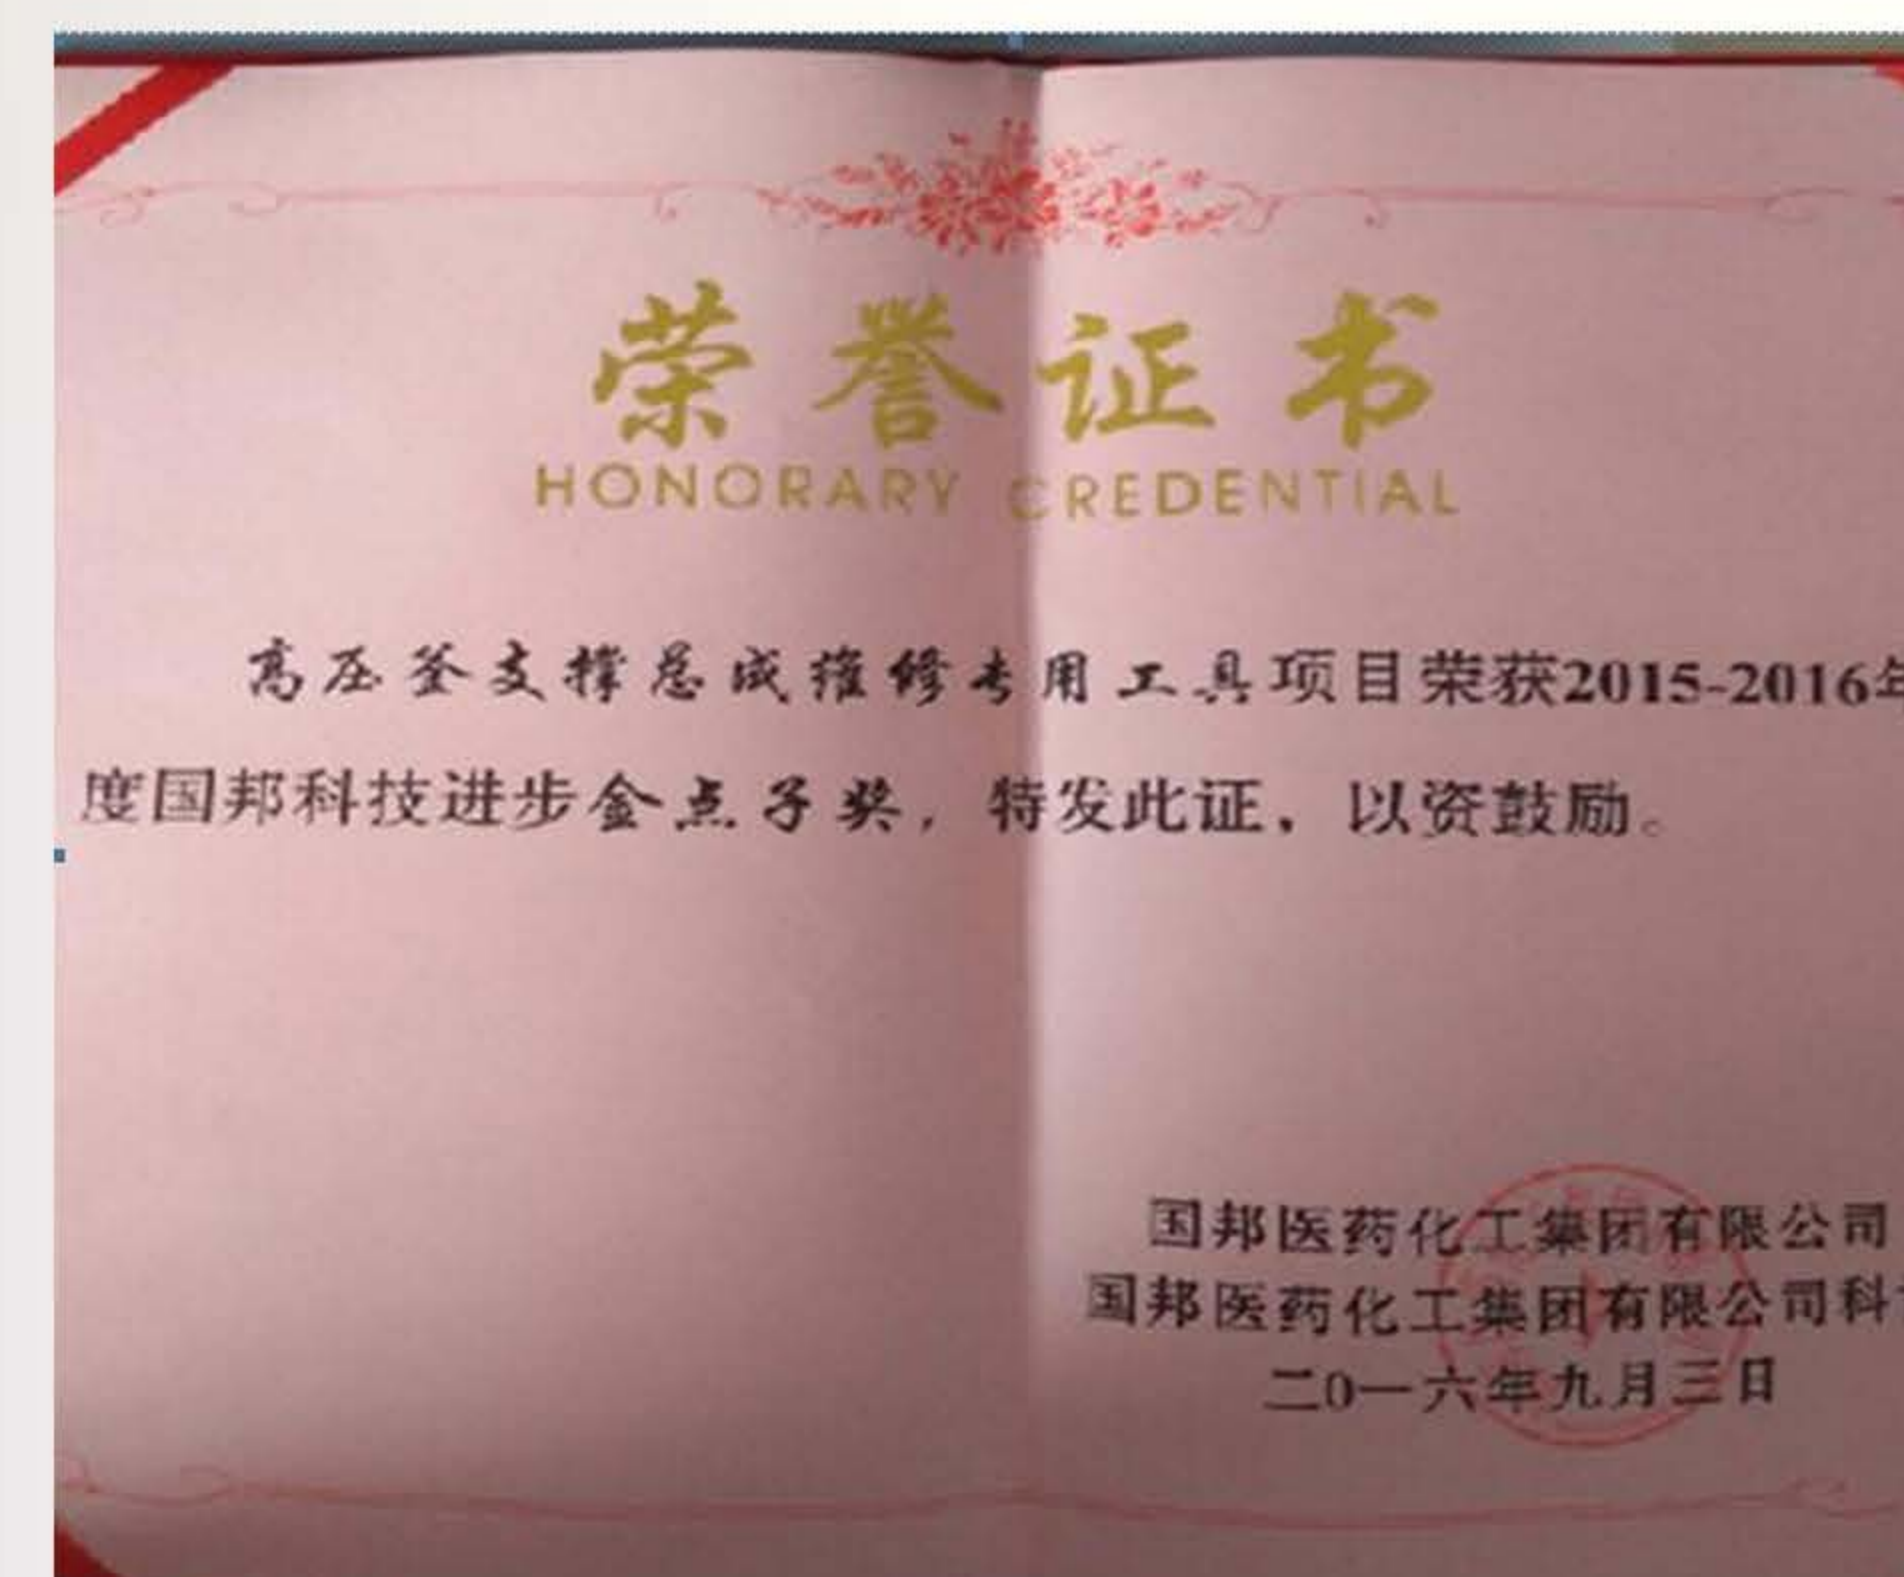 荣誉证书
HONORARY CREDENTIAL
高压釜支撑总成维修专用工具项目荣获2015-2016年
度国邦科技进步金点子奖，特发此证，以资鼓励。
国邦医药化工集团有限公司
国邦医药化工集团有限公司科
二0一六年九月三日